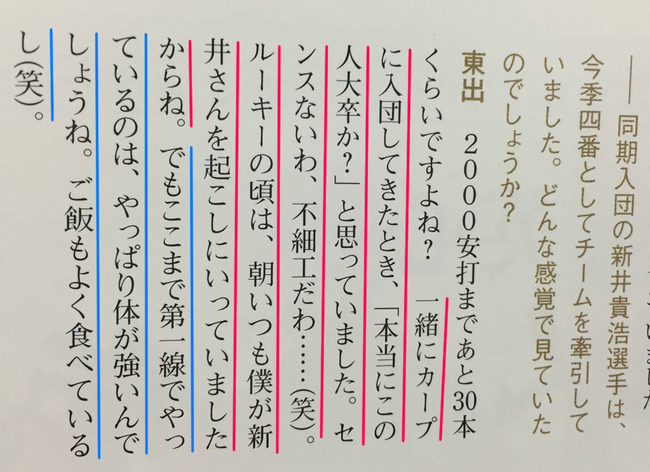 ―― 同期入団の新井貴浩選手は、
今季四番としてチームを牽引して
いました。どんな感覚で見ていた
のでしょうか?
東出　2000安打まであと30本
くらいですよね? 一緒にカープ
に入団してきたとき、「本当にこの
人大卒か?」と思っていました。セ
ンスないわ、不細工だわ……(笑)。
ルーキーの頃は、朝いつも僕が新
井さんを起こしにいっていました
からね。でもここまで第一線でやっ
ているのは、やっぱり体が強いんで
しょうね。ご飯もよく食べている
し(笑)。